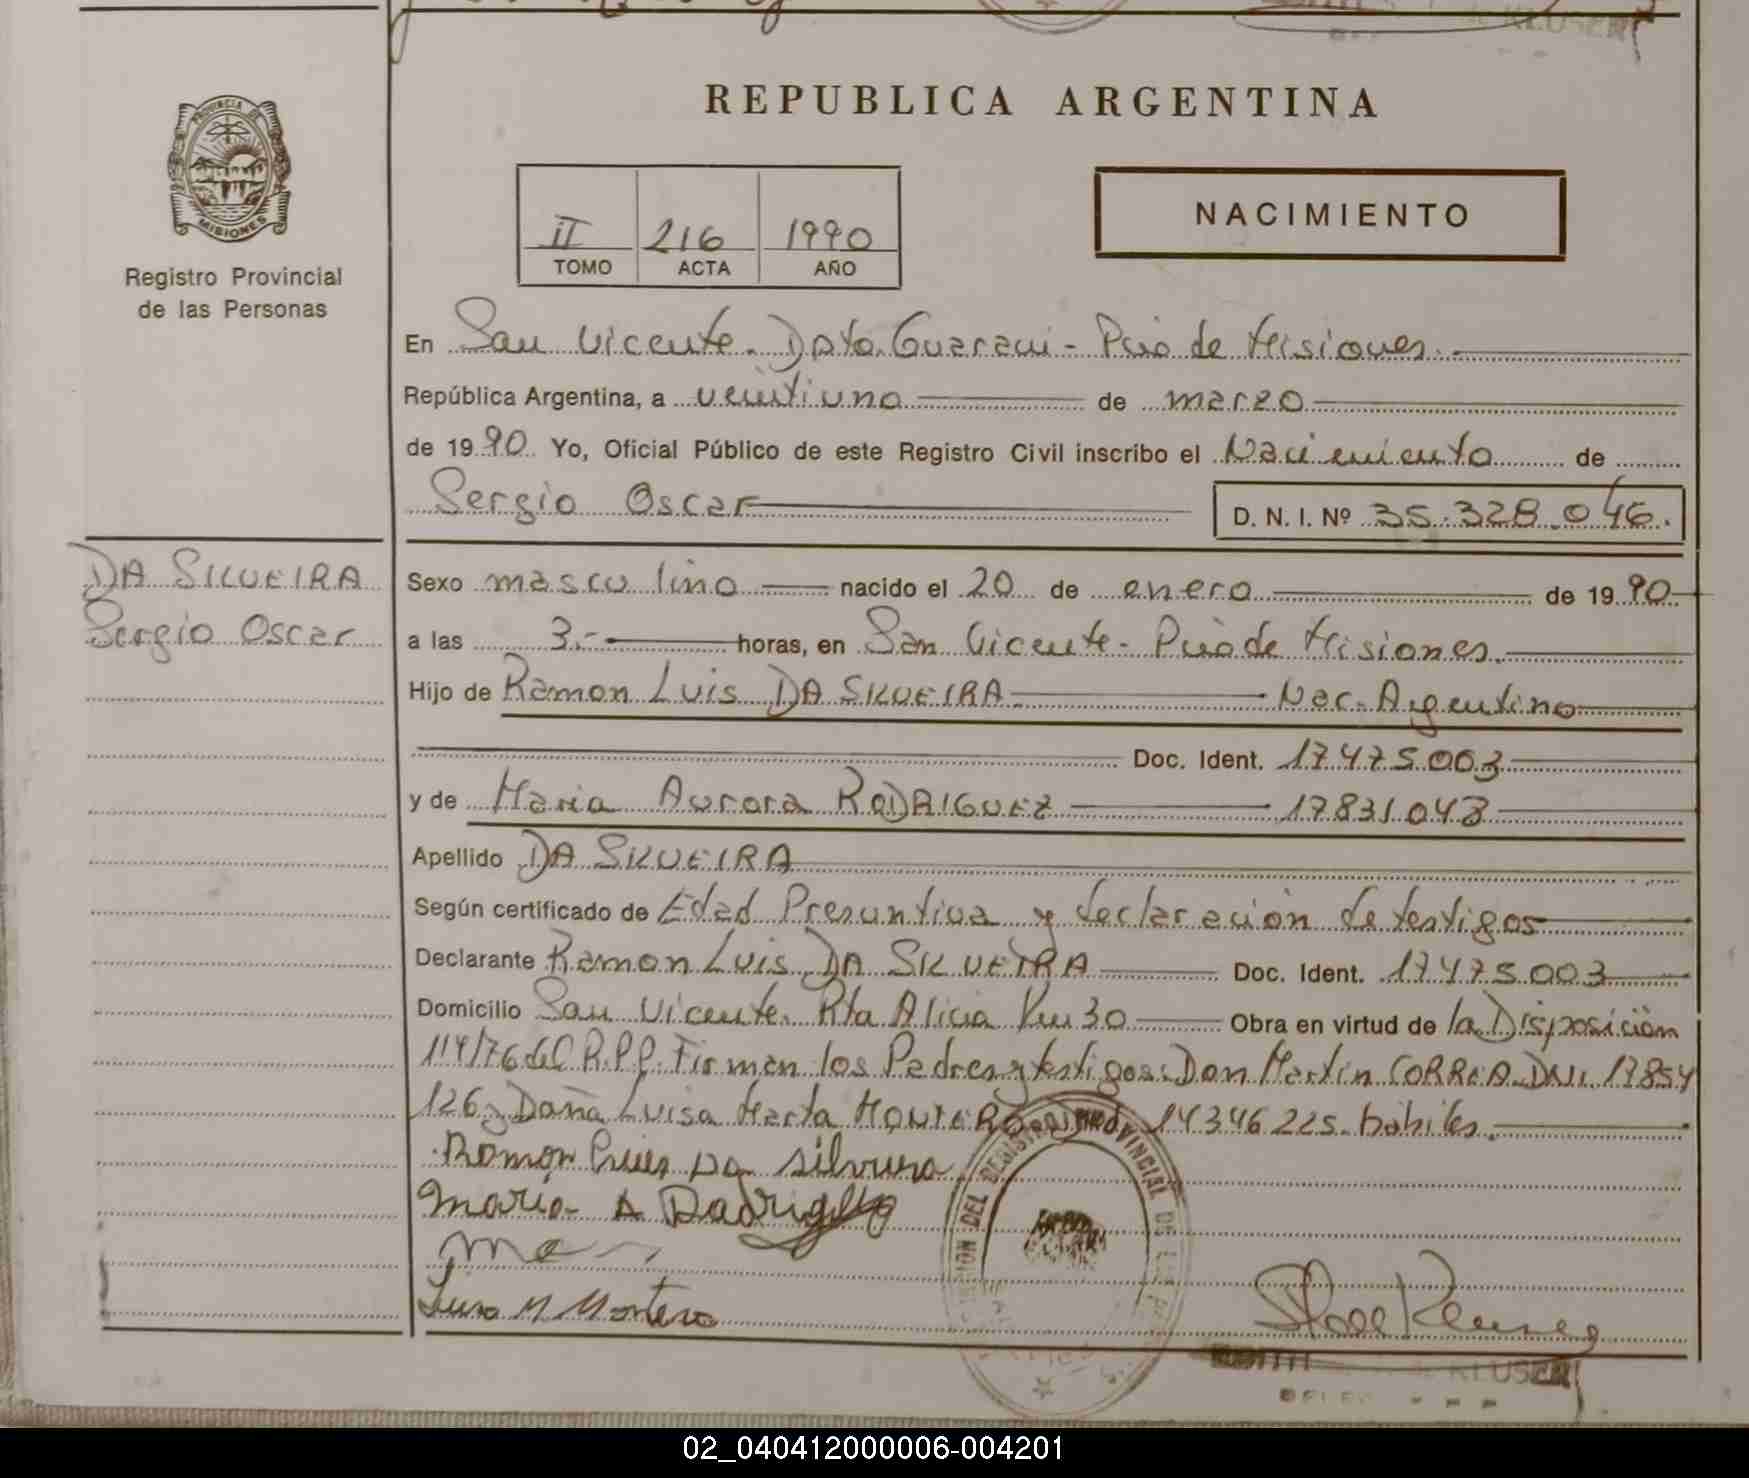 REPUBLICA ARGENTINA
PROVINCIA DE
MISIONES
Registro Provincial
de las Personas
II 216 1990
TOMO ACTA AÑO
NACIMIENTO
En San Vicente. Dpto. Guarani - Pcia de Misiones.
República Argentina, a veintiuno de marzo
de 1990. Yo, Oficial Público de este Registro Civil inscribo el Nacimiento de
Sergio Oscar
D. N. I. Nº 35.328.046.
DA SILVEIRA
Sergio Oscar
Sexo masculino nacido el 20 de enero de 1990
a las 3.- horas, en San Vicente - Pcia de Misiones.
Hijo de Ramon Luis DA SILVEIRA. Nac. Argentino
Doc. Ident. 17475.003
y de Maria Aurora RODRIGUEZ 17831.043
Apellido DA SILVEIRA
Según certificado de Edad Presuntiva y declaración de testigos
Declarante Ramon Luis DA SILVEIRA Doc. Ident. 17.475.003
Domicilio San Vicente. Rta Alicia Km 30 Obra en virtud de la Disposición
114/76 del R.P.P. Firman los Padres y testigos: Don Martin CORREA DNI. 17854
126 y Doña Luisa Marta MONTERO 14346225. hábiles.
Ramon Luis Da Silveira
Maria A Rodriguez
Luisa M Montero
REGISTRO PROVINCIAL DE LAS
KLUSER
02_040412000006-004201